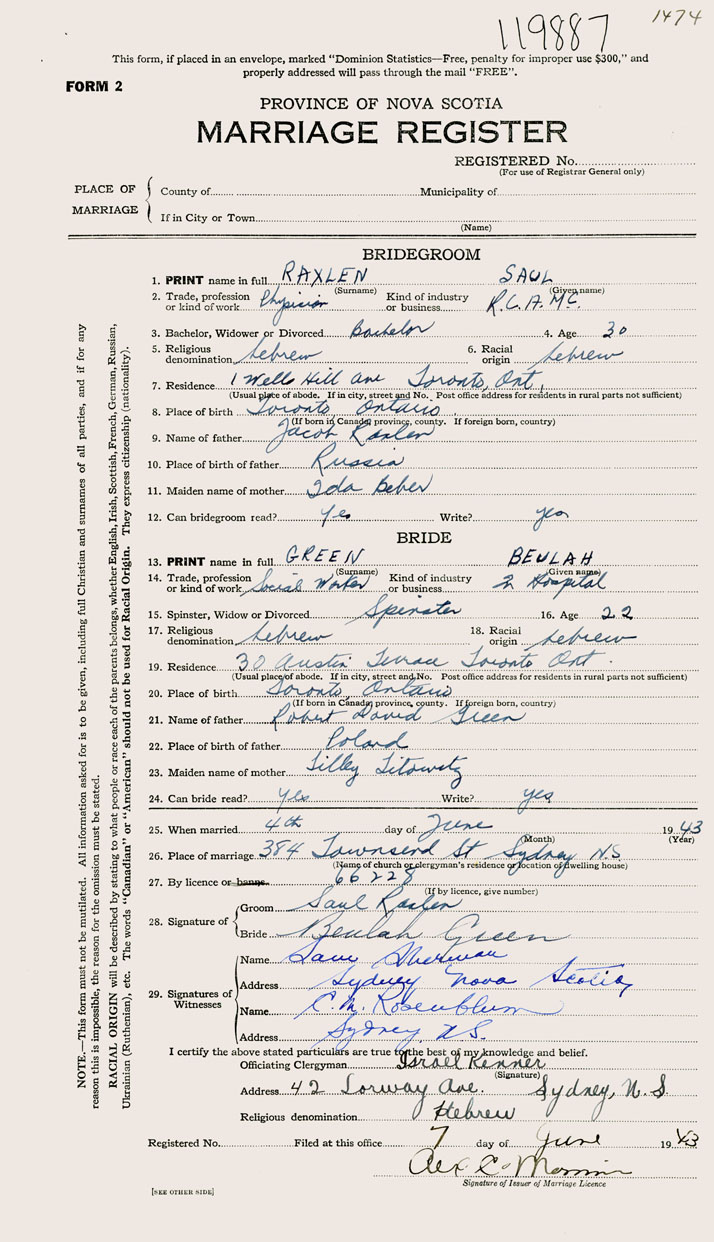 119887
1474
This form, if placed in an envelope, marked "Dominion Statistics—Free, penalty for improper use $300," and
properly addressed will pass through the mail "FREE".
FORM 2
PROVINCE OF NOVA SCOTIA
MARRIAGE REGISTER
REGISTERED No.
(For use of Registrar General only)
PLACE OF MARRIAGE
County of Municipality of
If in City or Town
(Name)
BRIDEGROOM
1. PRINT name in full RAXLEN SAUL
(Surname) (Given name)
2. Trade, profession or kind of work Physician Kind of industry or business R.C.A.M.C.
3. Bachelor, Widower or Divorced Bachelor 4. Age 30
5. Religious denomination hebrew 6. Racial origin hebrew
7. Residence 1 Wells Hill ave Toronto, Ont.
(Usual place of abode. If in city, street and No. Post office address for residents in rural parts not sufficient)
8. Place of birth Toronto, Ontario
(If born in Canada, province, county. If foreign born, country)
9. Name of father Jacob Raxlen
10. Place of birth of father Russia
11. Maiden name of mother Ida Beber
12. Can bridegroom read? Yes Write? yes
BRIDE
13. PRINT name in full GREEN BEULAH
(Surname) (Given name)
14. Trade, profession or kind of work Social Worker Kind of industry or business Hospital
15. Spinster, Widow or Divorced Spinster 16. Age 22
17. Religious denomination hebrew 18. Racial origin hebrew
19. Residence 30 Austin Terrace Toronto Ont.
(Usual place of abode. If in city, street and No. Post office address for residents in rural parts not sufficient)
20. Place of birth Toronto, Ontario
(If born in Canada, province, county. If foreign born, country)
21. Name of father Robert David Green
22. Place of birth of father Poland
23. Maiden name of mother Tilley Litowitz
24. Can bride read? Yes Write? yes
25. When married 4th day of June 1943
(Month) (Year)
26. Place of marriage 384 Townsend St Sydney N.S.
(Name of church or clergyman's residence or location of dwelling house)
27. By licence or banns. 66228
(If by licence, give number)
28. Signature of
Groom Saul Raxlen
Bride Beulah Green
29. Signatures of Witnesses
Name Sam Sherman
Address Sydney Nova Scotia
Name C.M. Rosenblum
Address Sydney N.S.
I certify the above stated particulars are true to the best of my knowledge and belief.
Officiating Clergyman Israel Kenner
(Signature)
Address 42 Lorway Ave. Sydney, N.S
Religious denomination Hebrew
Registered No. Filed at this office 7 day of June 1943
Alex C.
Signature of Issuer of Marriage Licence
[SEE OTHER SIDE]
NOTE.—This form must not be mutilated. All information asked for is to be given, including full Christian and surnames of all parties, and if for any
reason this is impossible, the reason for the omission must be stated.
RACIAL ORIGIN will be described by stating to what people or race each of the parents belongs, whether English, Irish, Scottish, French, German, Russian,
Ukrainian (Ruthenian), etc. The words "Canadian" or "American" should not be used for Racial Origin. They express citizenship (nationality).